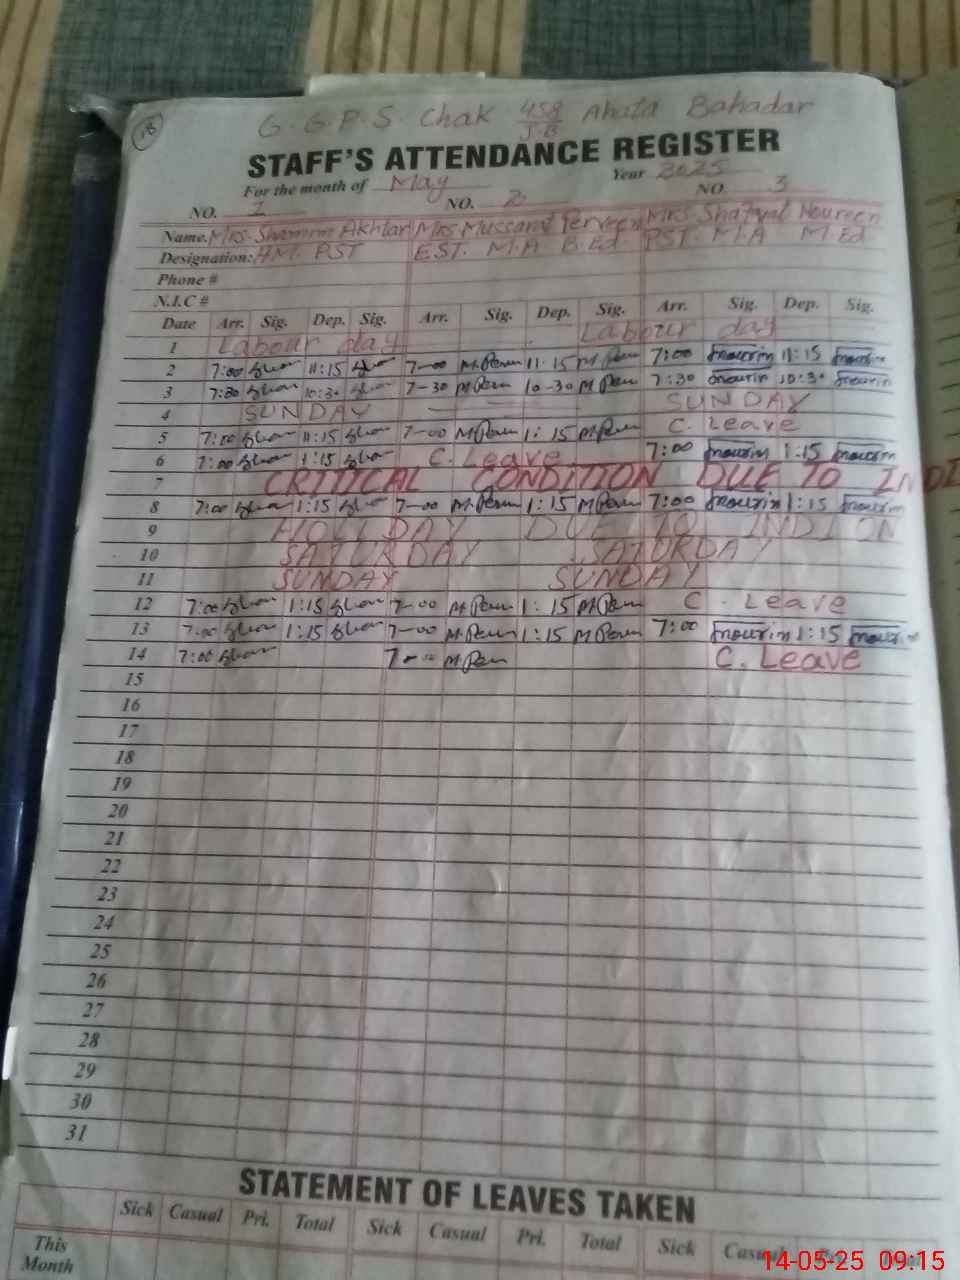 18
G.G.P.S. Chak 458/J.B Ahata Bahadar
STAFF'S ATTENDANCE REGISTER
For the month of May Year 2025
NO. 1 NO. 2 NO. 3
Name. Mrs. Shamim Akhtar Mrs Mussarat Perveen Mrs. Shafqat Noureen
Designation: HM. PST EST. M.A B.Ed PST. M.A M.Ed
Phone #
N.I.C #
Date Arr. Sig. Dep. Sig. Arr. Sig. Dep. Sig. Arr. Sig. Dep. Sig.
1 Labour day Labour day
2 7:00 11:15 7-00 11:15 7:00 nourin 11:15 nourin
3 7:30 10:30 7-30 10-30 7:30 nourin 10:30 nourin
4 SUNDAY SUNDAY
5 7:00 11:15 7-00 1:15 C. Leave
6 7:00 1:15 C. Leave 7:00 nourin 1:15 nourin
7 CRITICAL CONDITION DUE TO
8 7:00 1:15 7-00 1:15 7:00 nourin 1:15 nourin
9 HOLIDAY DUE TO INDION
10 SATURDAY SATURDAY
11 SUNDAY SUNDAY
12 7:00 1:15 7-00 1:15 C. Leave
13 7:00 1:15 7-00 1:15 7:00 nourin 1:15 nourin
14 7:00 7-00 C. Leave
15
16
17
18
19
20
21
22
23
24
25
26
27
28
29
30
31
STATEMENT OF LEAVES TAKEN
Sick Casual Pri. Total Sick Casual Pri. Total Sick Casual Pri. Total
This Month
14-05-25 09:15